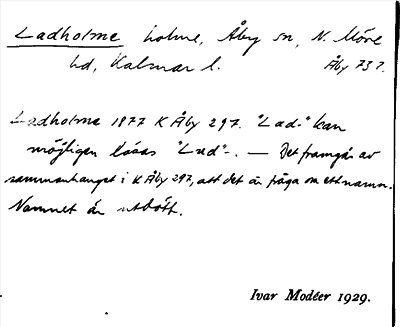 Ladholme holme, Åby sn, N. Möre
hd, Kalmar l. Åby 737.
Ladholme 1877 K Åby 297. "Lad-" kan
möjligen läsas "Lud"-. — Det framgår av
sammanhanget i K Åby 297, att det är fråga om ett namn.
Namnet är utdött.
Ivar Modéer 1929.